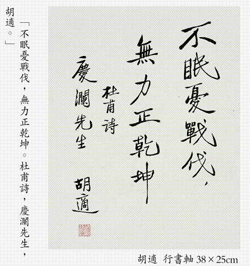 不眠憂戰伐，
無力正乾坤
杜甫詩
慶瀾先生
胡適
「不眠憂戰伐，無力正乾坤。杜甫詩，慶瀾先生，
胡適。」
胡適 行書軸 38×25cm